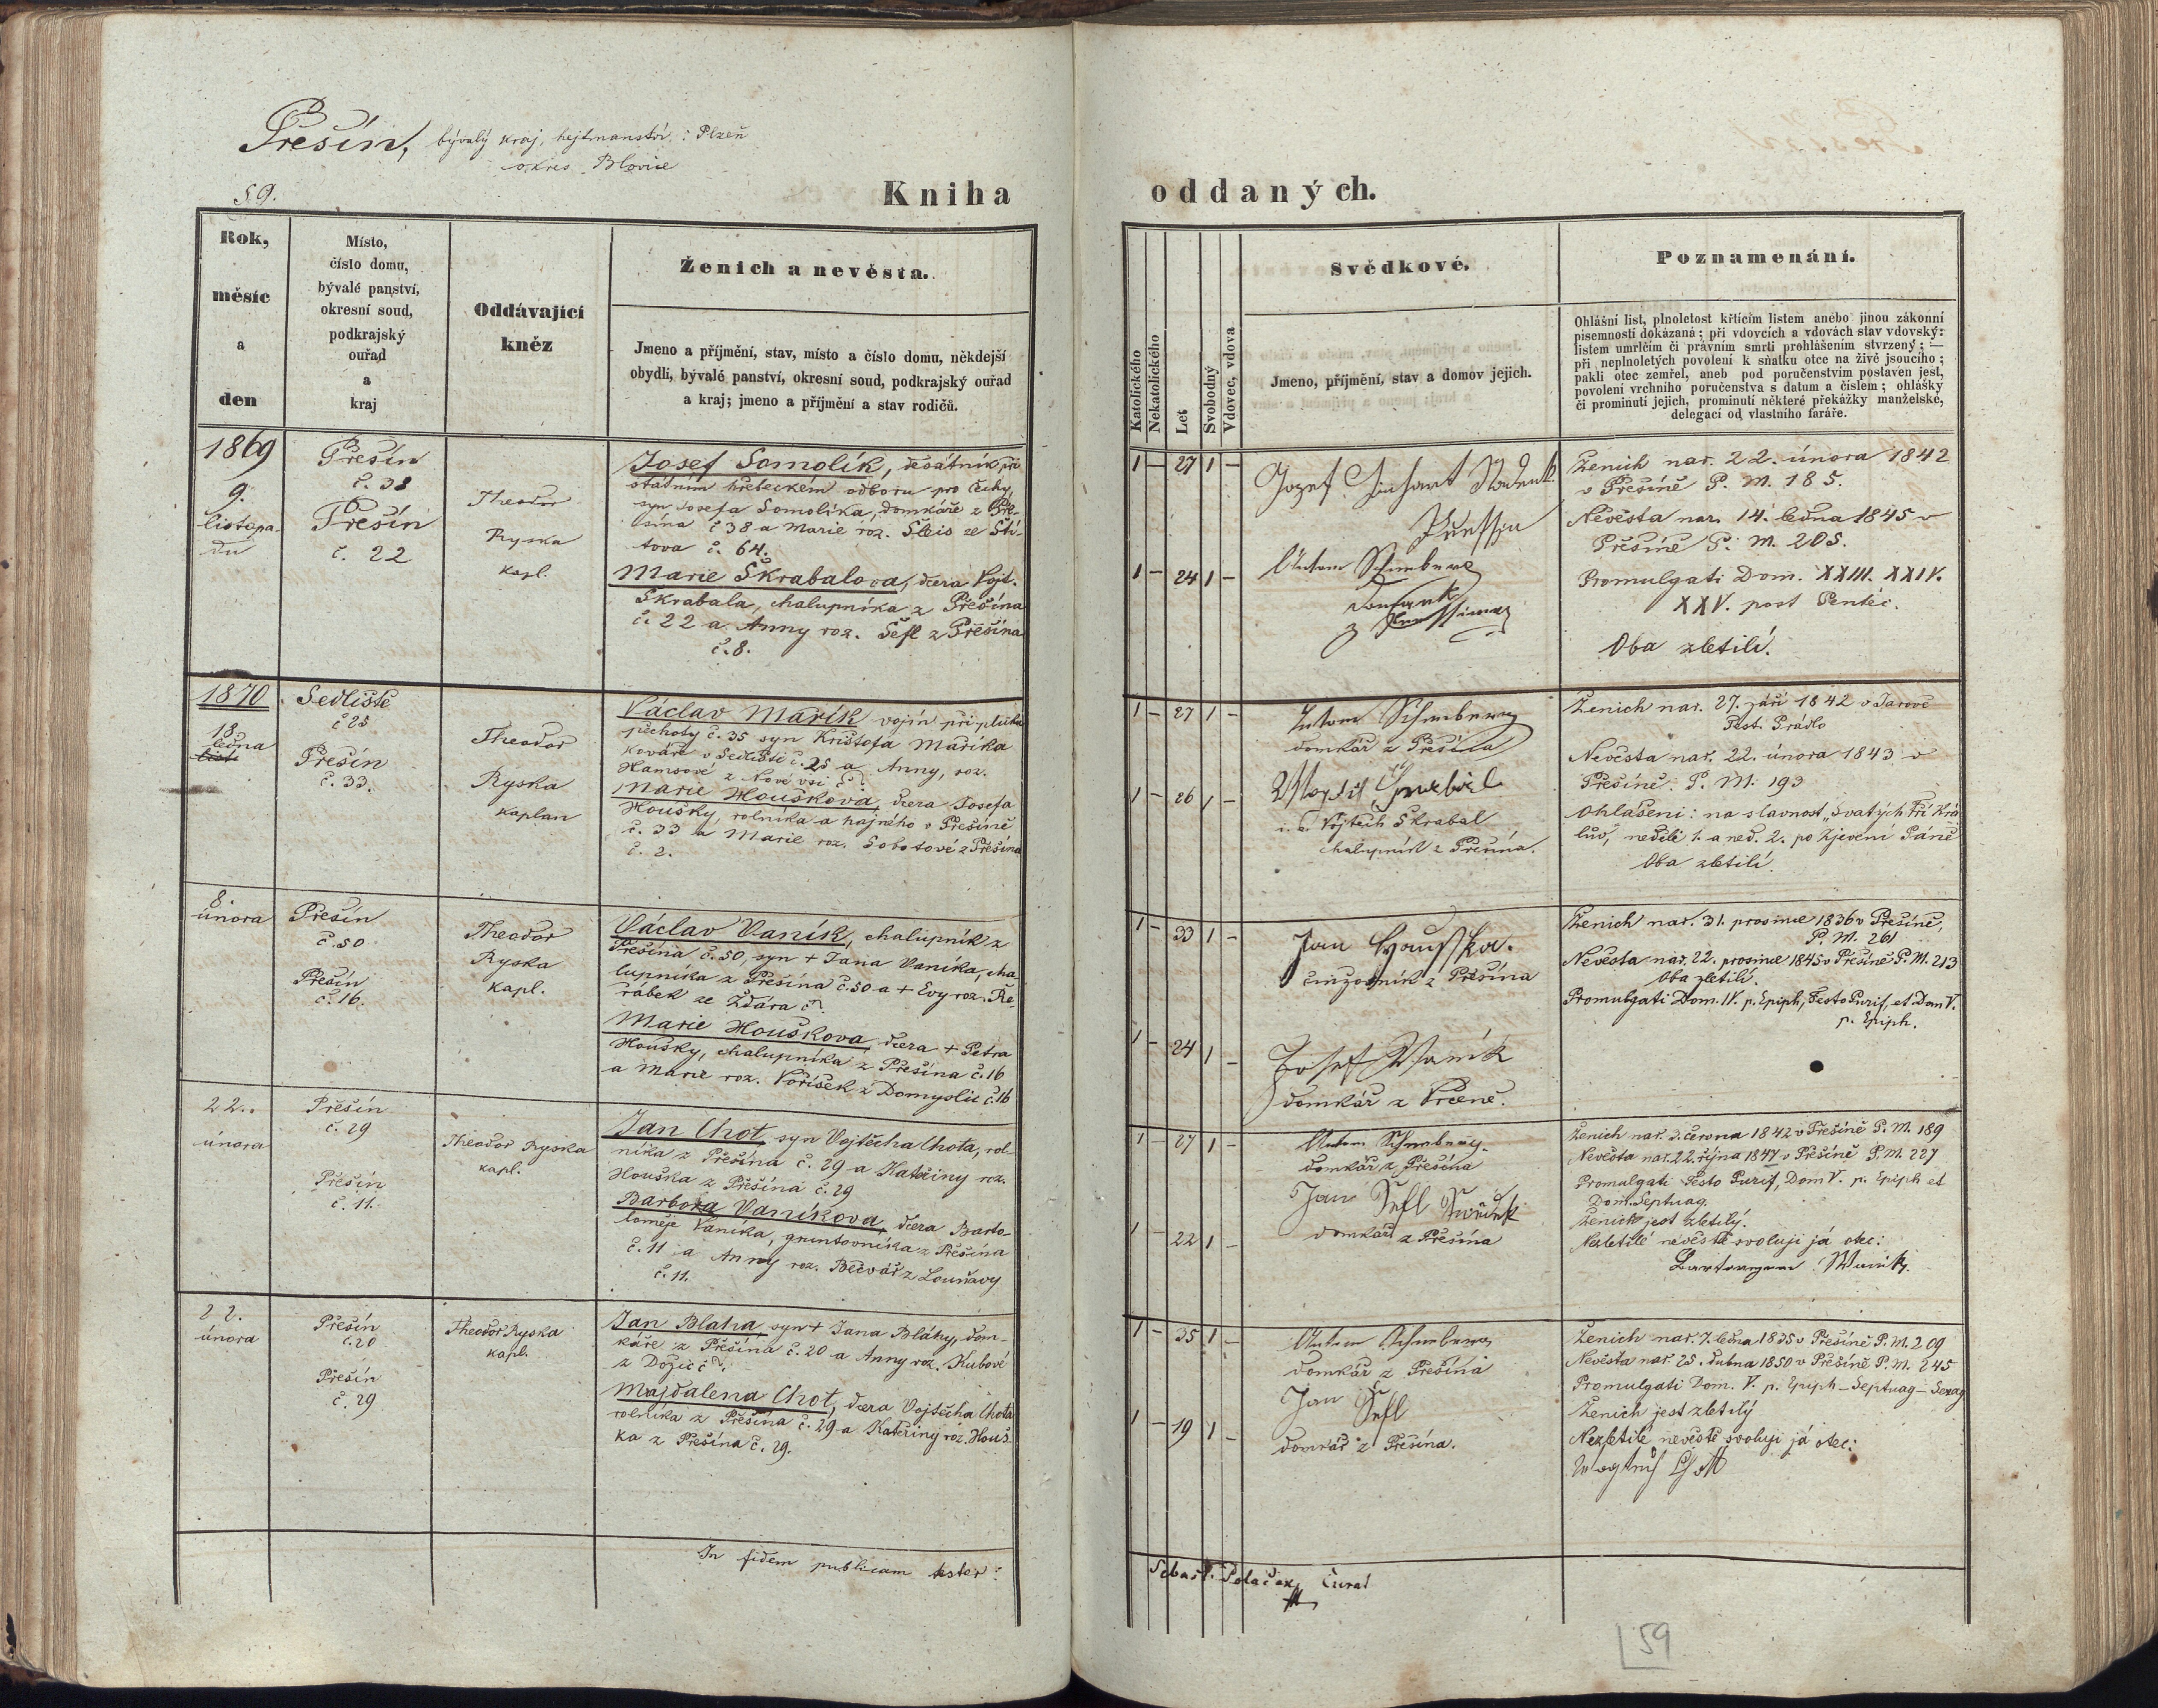 Přešín, bývalý kraj, hejtmanství: Plzeň
okres Blovice
59.
Kniha
Rok,
měsíc
a
den
Místo,
číslo domu,
bývalé panství,
okresní soud,
podkrajský
ouřad
a
kraj
Oddávající
kněz
Ženich a nevěsta.
Jmeno a příjmění, stav, místo a číslo domu, někdejší
obydlí, bývalé panství, okresní soud, podkrajský ouřad
a kraj; jmeno a příjmění a stav rodičů.
1869
9.
listopa-
du
Přešín
č. 38
Přešín
č. 22
Theodor
Ryska
kapl.
Josef Somolík, desátník při
státním hřebeckém odboru pro Čechy,
syn Josefa Somolíka, domkáře z Pře-
šína č 38 a Marie roz. Šleis ze Ští-
tova č. 64.
Marie Škrabalova, dcera Vojt.
Škrabala, chalupníka z Přešína
č. 22 a Anny roz. Šefl z Přešína
č. 8.
1870
18.
ledna
Sedliště
č 25
Přešín
č. 33.
Theodor
Ryska
kaplan
Václav Mařík vojín při pluku
pěchoty č. 35 syn Krištofa Maříka
kováře v Sedlišti č. 25 a Anny, roz.
Hamsové z Nové vsi č ?.
Marie Houškova, dcera Josefa
Houšky, rolníka a hajného v Přešíně
č. 33 a Marie roz. Sobotové z Přešína
č. 2.
8.
února
Přešín
č. 50
Přešín
č. 16.
Theodor
Ryska
kapl.
Václav Vaník, chalupník z
Přešína č. 50, syn + Jana Vaníka, cha-
lupníka z Přešína č. 50 a + Evy roz. Ře-
rábek ze Ždára č ?.
Marie Houškova, dcera + Petra
Houšky, chalupníka z Přešína č. 16
a Marie roz. Voříšek z Domyslic č. 16
22.
února
Přešín
č. 29
Přešín
č. 11.
Theodor Ryska
kapl.
Jan Chot, syn Vojtěcha Chota, rol-
níka z Přešína č. 29 a Kateřiny roz.
Houška z Přešína č. 29
Barbora Vaníkova, dcera Barto-
loměje Vaníka, gruntovníka z Přešína
č. 11 a Anny roz. Bečvář z Louňavy
č. 11.
22.
února
Přešín
č. 20
Přešín
č. 29
Theodor Ryska
kapl.
Jan Blaha, syn + Jana Bláhy, dom-
káře z Přešína č. 20 a Anny roz. Kubové
z Dožic č ?.
Majdalena Chot, dcera Vojtěcha Chota
rolníka z Přešína č. 29 a Kateřiny roz. Houš-
ka z Přešína č. 29.
In fidem publicam tester:
oddaných.
Katolického
Nekatolického
Let
Svobodný
Vdovec, vdova
Svědkové.
Jmeno, příjmění, stav a domov jejich.
Poznamenání.
Ohlášní list, plnoletost křtícím listem anebo jinou zákonní
písemností dokázaná; při vdovcích a vdovách stav vdovský:
listem umrlčím či právním smrti prohlášením stvrzený; —
při neplnoletých povolení k sňatku otce na živě jsoucího;
pakli otec zemřel, aneb pod poručenstvím postaven jest,
povolení vrchního poručenstva s datum a číslem; ohlášky
či prominutí jejich, prominutí některé překážky manželské,
delegací od vlastního faráře.
1 — 27 1 —
1 — 24 1 —
Anton Schneberg
Ženich nar. 22. února 1842
v Přešíně P. M. 185.
Nevěsta nar. 14. ledna 1845 v
Přešíně P. M. 205.
Promulgati Dom. XXIII. XXIV.
XXV. post Pentec.
Oba zletilí.
1 — 27 1 —
1 — 26 1 —
Anton Schneberg
domkář z Přešína
i. e. Vojtěch Škrabal
chalupník z Přešína.
Ženich nar. 27. září 1842 v Jarově
Pest. Prádlo
Nevěsta nar. 22. února 1843 v
Přešíně. P. M. 193
Ohlášeni: na slavnost „Svatých Tří Krá-
lův, neděli 1. a ned. 2. po Zjevení Páně
Oba zletilí.
1 — 33 1 —
1 — 24 1 —
Jan Houška.
z Přešína
Josef Vaník
domkář z Vrčeně.
Ženich nar. 31. prosince 1836 v Přešíně,
P. M. 261
Nevěsta nar. 22. prosince 1845 v Přešíně P. M. 213
Oba zletilí.
Promulgati Dom. IV. p. Epiph, Festo Purif, et Dom V.
p. Epiph.
1 — 27 1 —
1 — 22 1 —
Anton Schneberg.
domkář z Přešína
Jan Šefl Svědek
domkář z Přešína
Ženich nar. 3. června 1842 v Přešíně P. M. 189
Nevěsta nar. 22. října 1847 v Přešíně P. M. 227
Promulgati Festo Purif, Dom V. p. Epiph et
Dom. Septuag.
Ženich jest zletilý.
Nezletilé nevěstě svoluji já otec:
1 — 35 1 —
1 — 19 1 —
Anton Schneberg
domkář z Přešína
Jan Šefl
domkář z Přešína.
Ženich nar. 7. ledna 1835 v Přešíně P. M. 209
Nevěsta nar. 25. dubna 1850 v Přešíně P. M. 245
Promulgati Dom. V. p. Epiph — Septuag — Sexag
Ženich jest zletilý
Nezletilé nevěstě svoluji já otec:
Sebast. Poláček, Curat
59